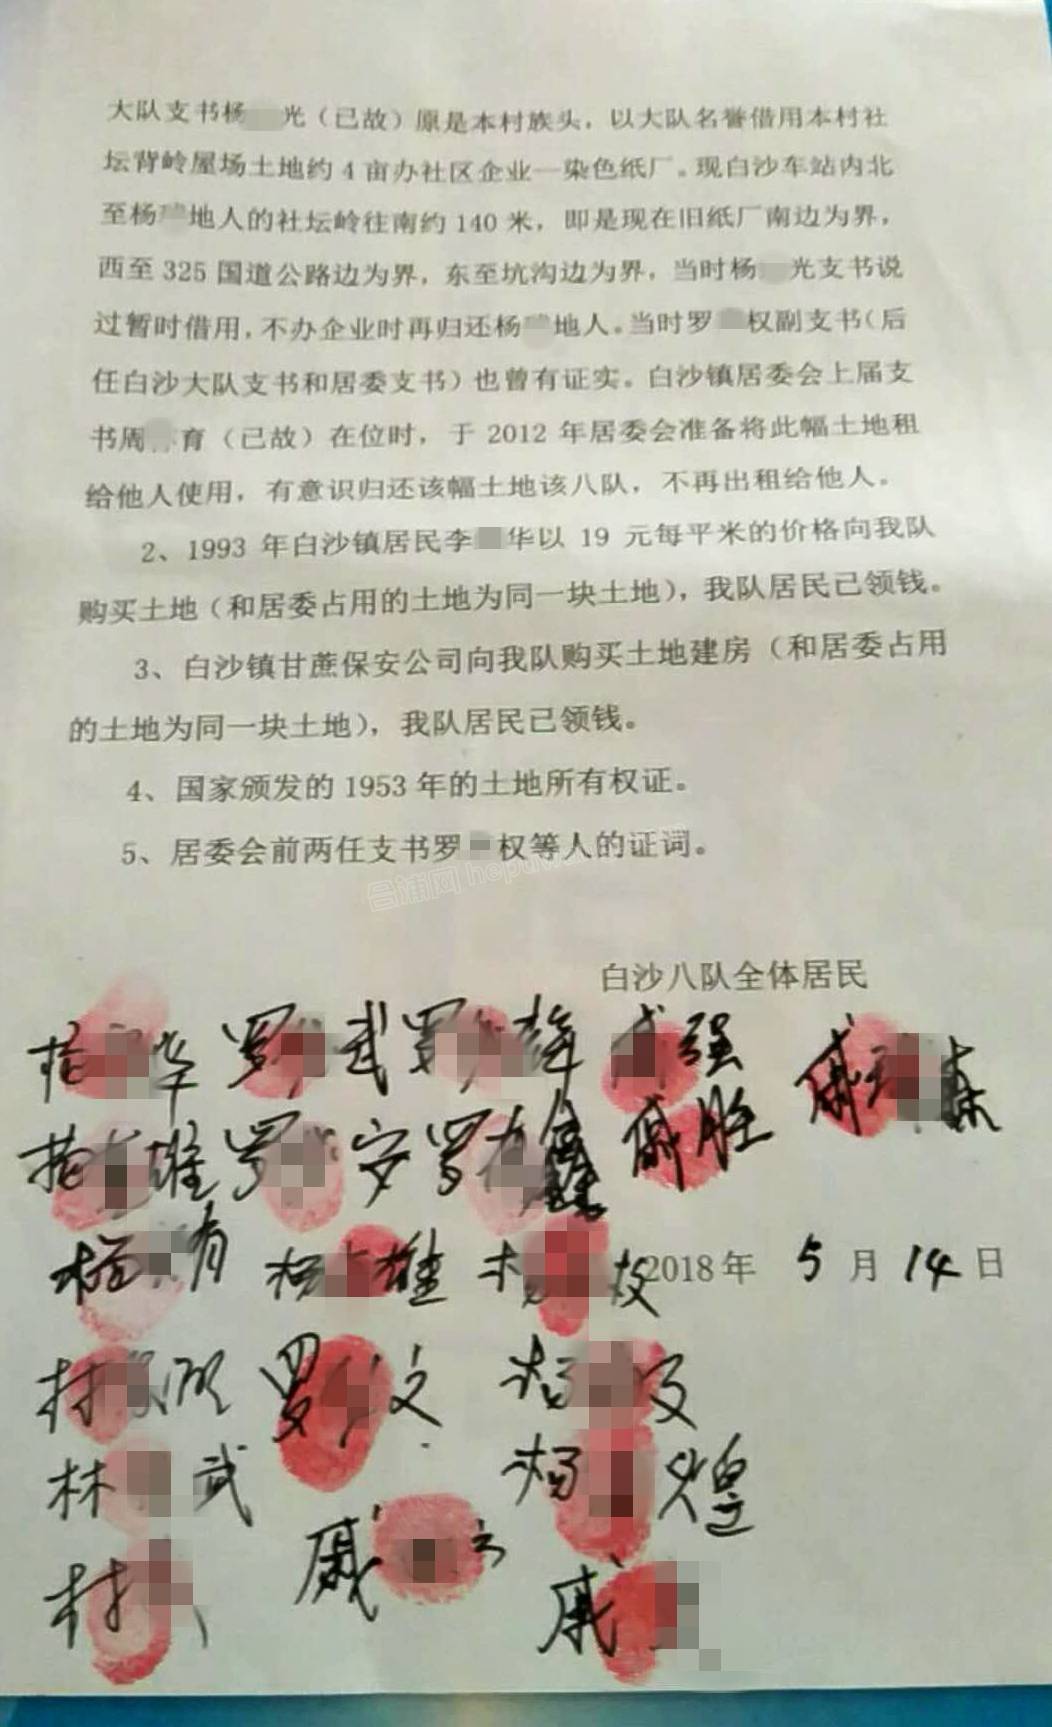 大队支书杨 光（已故）原是本村族头，以大队名誉借用本村社
坛背岭屋场土地约 4 亩办社区企业—染色纸厂。现白沙车站内北
至杨 地人的社坛岭往南约 140 米，即是现在旧纸厂南边为界，
西至 325 国道公路边为界，东至坑沟边为界，当时杨 光支书说
过暂时借用，不办企业时再归还杨 地人。当时罗 权副支书（后
任白沙大队支书和居委支书）也曾有证实。白沙镇居委会上届支
书周 育（已故）在位时，于 2012 年居委会准备将此幅土地租
给他人使用，有意识归还该幅土地该八队，不再出租给他人。
2、1993 年白沙镇居民李 华以 19 元每平米的价格向我队
购买土地（和居委占用的土地为同一块土地），我队居民已领钱。
3、白沙镇甘蔗保安公司向我队购买土地建房（和居委占用
的土地为同一块土地），我队居民已领钱。
4、国家颁发的 1953 年的土地所有权证。
5、居委会前两任支书罗 权等人的证词。
合浦网
白沙八队全体居民
华 罗 武 罗 强 戚 森
雄 罗 安 罗 鑫 戚胜
有 杨 雄 杨 枚 2018 年 5 月 14 日
罗 文 杨
林 武 杨 煌
戚 戚